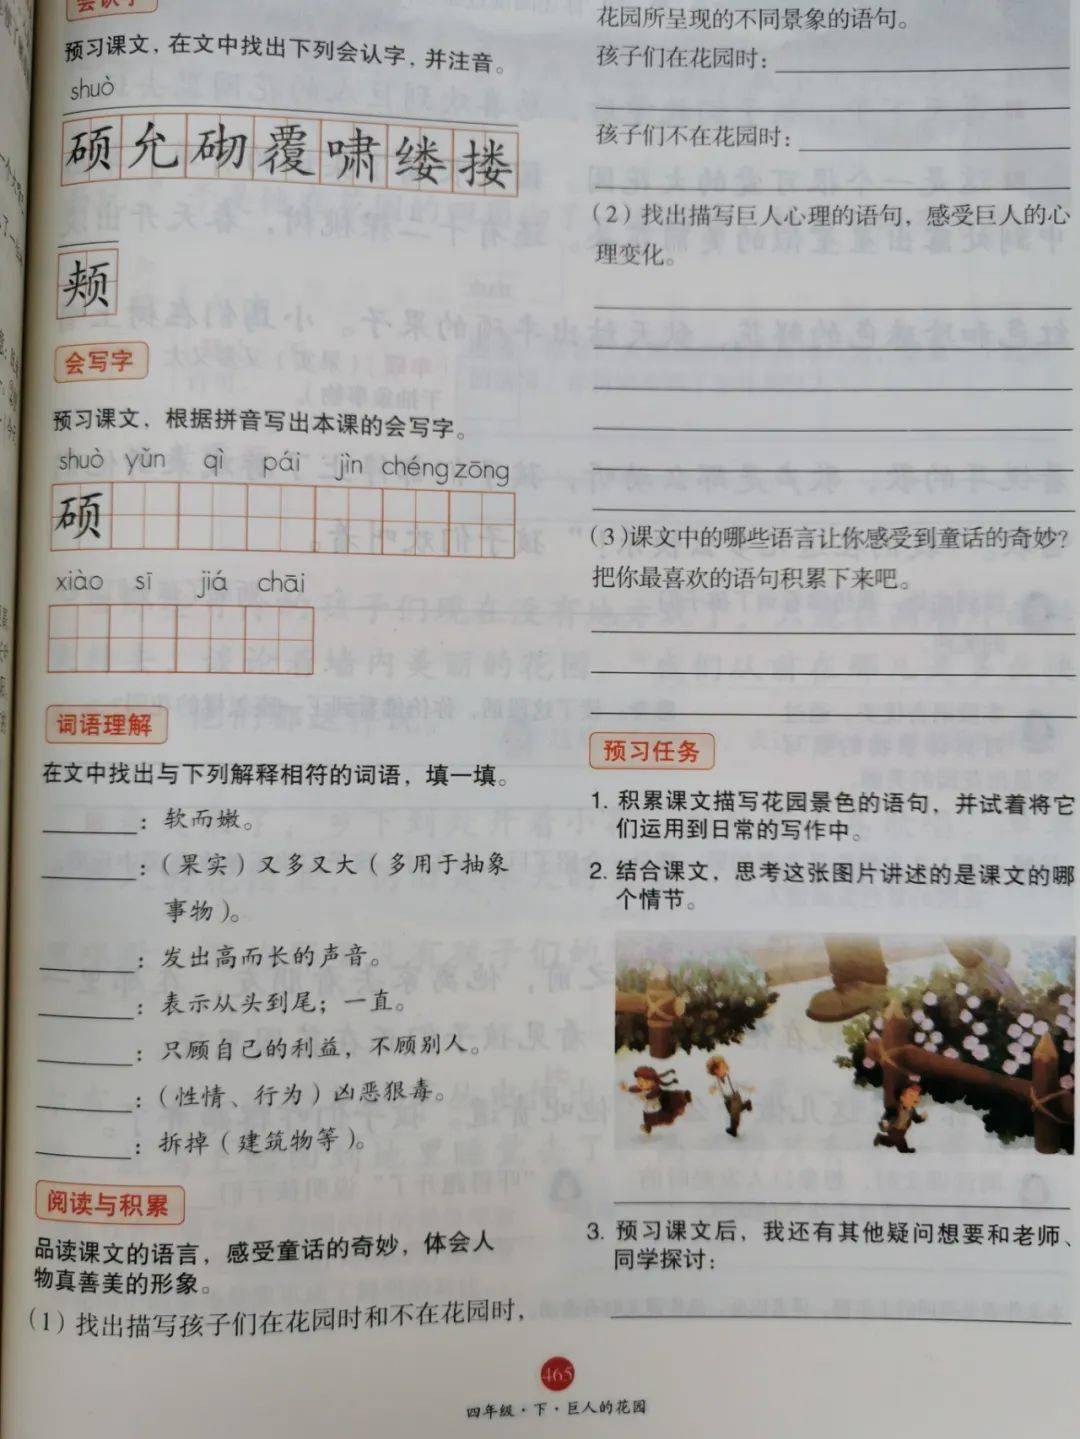 会认字
预习课文，在文中找出下列会认字，并注音。
shuò
硕允砌覆啸缕搂
颊
会写字
预习课文，根据拼音写出本课的会写字。
shuò yǔn qì pái jìn chéng zōng
硕
xiào sī jiá chāi
词语理解
在文中找出与下列解释相符的词语，填一填。
：软而嫩。
：（果实）又多又大（多用于抽象
事物）。
：发出高而长的声音。
：表示从头到尾；一直。
：只顾自己的利益，不顾别人。
：（性情、行为）凶恶狠毒。
：拆掉（建筑物等）。
阅读与积累
品读课文的语言，感受童话的奇妙，体会人
物真善美的形象。
（1）找出描写孩子们在花园时和不在花园时，
花园所呈现的不同景象的语句。
孩子们在花园时：
孩子们不在花园时：
（2）找出描写巨人心理的语句，感受巨人的心
理变化。
（3）课文中的哪些语言让你感受到童话的奇妙？
把你最喜欢的语句积累下来吧。
预习任务
1. 积累课文描写花园景色的语句，并试着将它
们运用到日常的写作中。
2. 结合课文，思考这张图片讲述的是课文的哪
个情节。
3. 预习课文后，我还有其他疑问想要和老师、
同学探讨：
465
四年级·下·巨人的花园